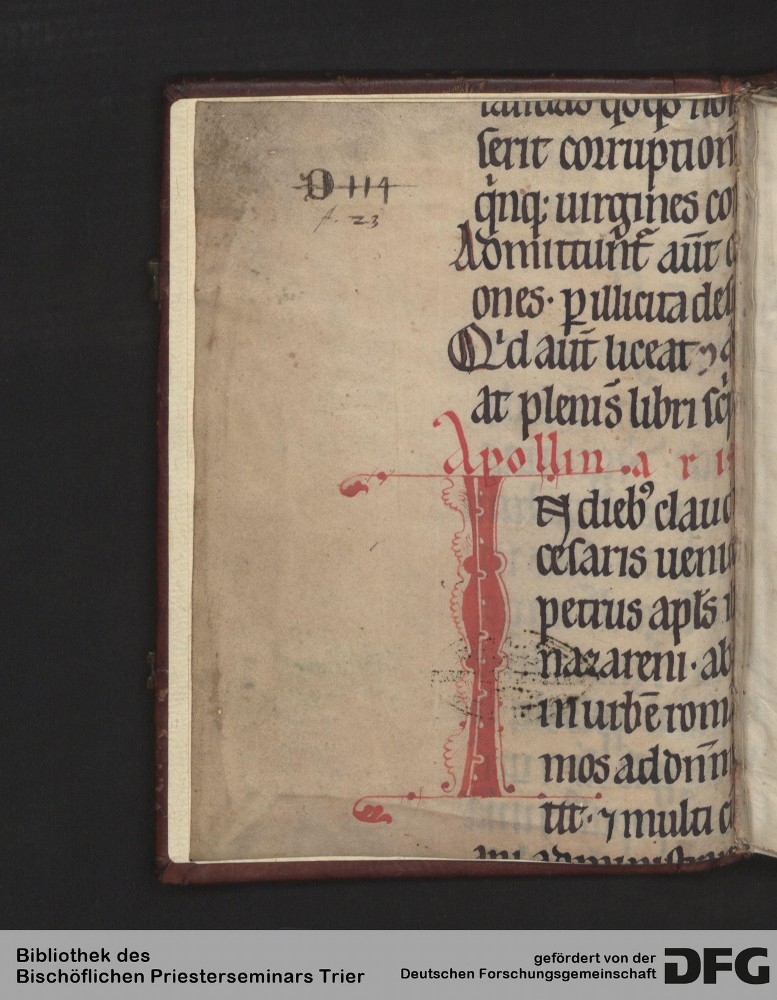 D 114
f. 23
serit corruption
q̇nq; uirgines co
Admittunt᷒ aūt
ones· ꝑ illicita des
Qͥd aūt liceat ⁊ q
at plenis̄ libri sc
Apollinaris
In dieb⁹ claud
cesaris uenit
petrus apl̄s
nazareni· ab
in urbē rom
mos ad dn̄m
tit· ⁊ multi c
Bibliothek des
Bischöflichen Priesterseminars Trier
gefördert von der
Deutschen Forschungsgemeinschaft
DFG